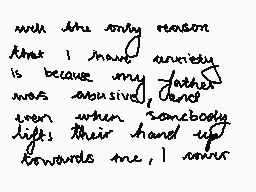 well the only reason
that I have anxiety
is because my father
was abusive, and
even when somebody
lifts their hand up
towards me, I cower